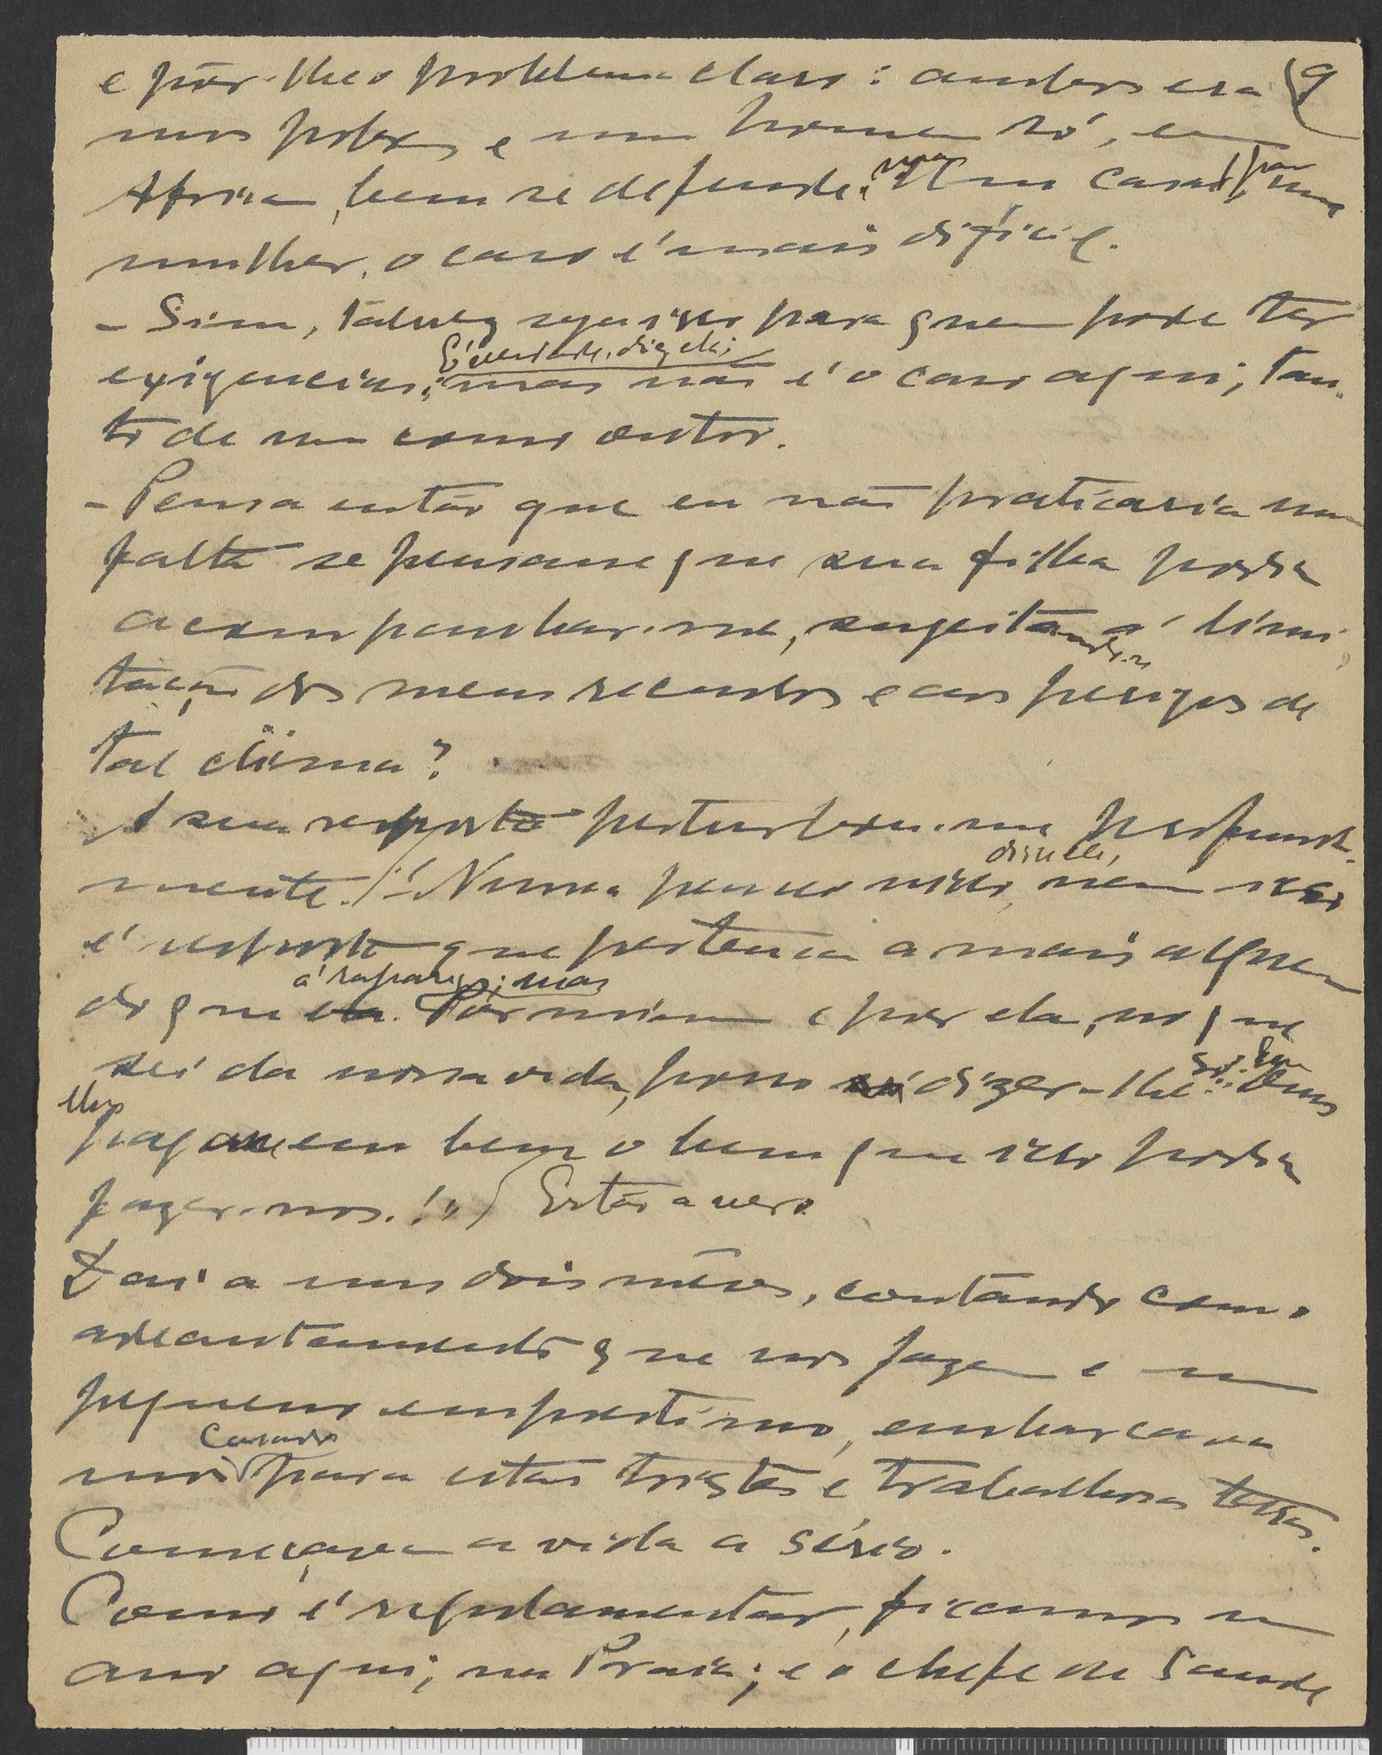 9
e pôr-lhe o problema claro: ambos era
mos pobres e um homem só, em
Africa, bem se defende; mas um casal, para uma
mulher, o caso é mais dificil.
- Sim, talvez seja isso para quem pode ter
exigencias; É verdade, diz ela; mas não é o caso aqui, tan-
to de um como outro.
- Pensa então que eu não praticaria uma
falta se pensasse que sua filha podia
acompanhar-me, sugeitando-se á limi-
tação dos meus recursos e aos perigos de
tal clima?
A sua resposta perturbou-me profunda-
mente. - Nunca pensei nisso, disse ela, nem isso
é resposta que pertença a mais alguem
do que á rapariga; mas Por mim e por ela, no que
sei da nossa vida, posso dizer-lhe só: Que Deus
lhe pague em bem o bem que isso podia
fazer-nos!» Estás a ver.
Dai a uns dois mêses, contando com o
adeantamento que nos fazem e um
pequeno emprestimo, embarcava
mos casados para estas tristes e trabalhosas terras.
Começava a vida a sério.
Como é regulamentar, ficamos um
ano aqui, na Praia; e o chefe de Saude